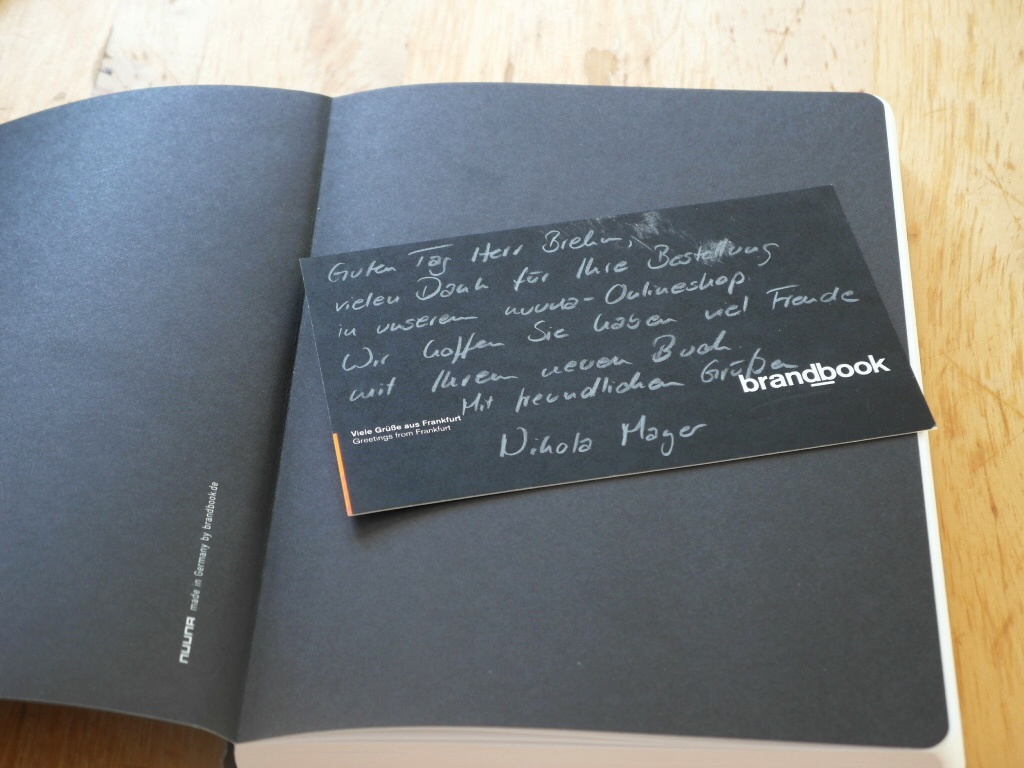 Guten Tag Herr Brehm,
vielen Dank für Ihre Bestellung
in unserem nuuna-Onlineshop
Wir hoffen Sie haben viel Freude
mit Ihrem neuen Buch.
Mit freundlichen Grüßen
Nikola Mayer
brandbook
Viele Grüße aus Frankfurt
Greetings from Frankfurt
nuuna made in Germany by brandbook.de